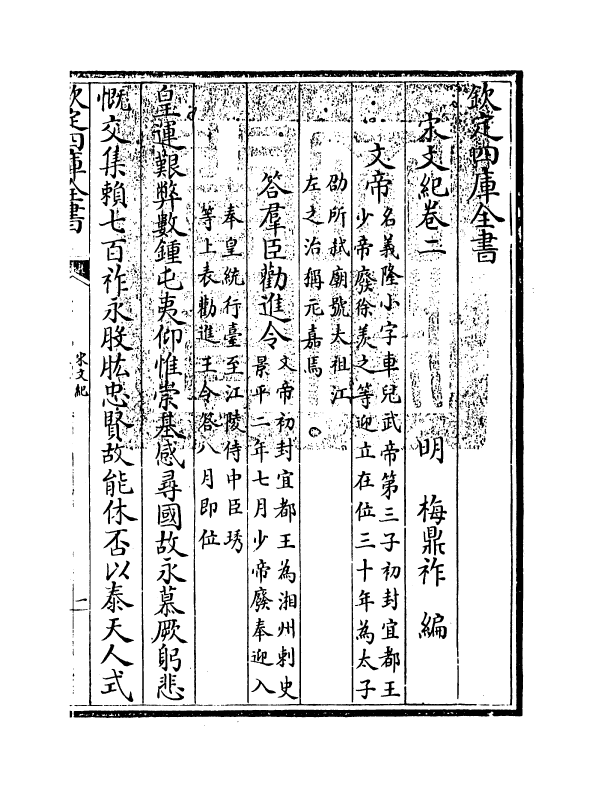 欽定四庫全書
宋文紀卷二
明 梅鼎祚 編
文帝
名義隆小字車兒武帝第三子初封宜都王
少帝廢徐羡之等迎立在位三十年為太子
劭所弑廟號太祖江
左之治稱元嘉焉
答羣臣勸進令
文帝初封宜都王為湘州刺史
景平二年七月少帝廢奉迎入
奉皇統行臺至江陵侍中臣琇
等上表勸進王令答八月即位
皇運艱弊數鍾屯夷仰惟崇基感尋國故永慕厥躬悲
慨交集賴七百祚永股肱忠賢故能休否以泰天人式
欽定四庫全書
宋文紀
一